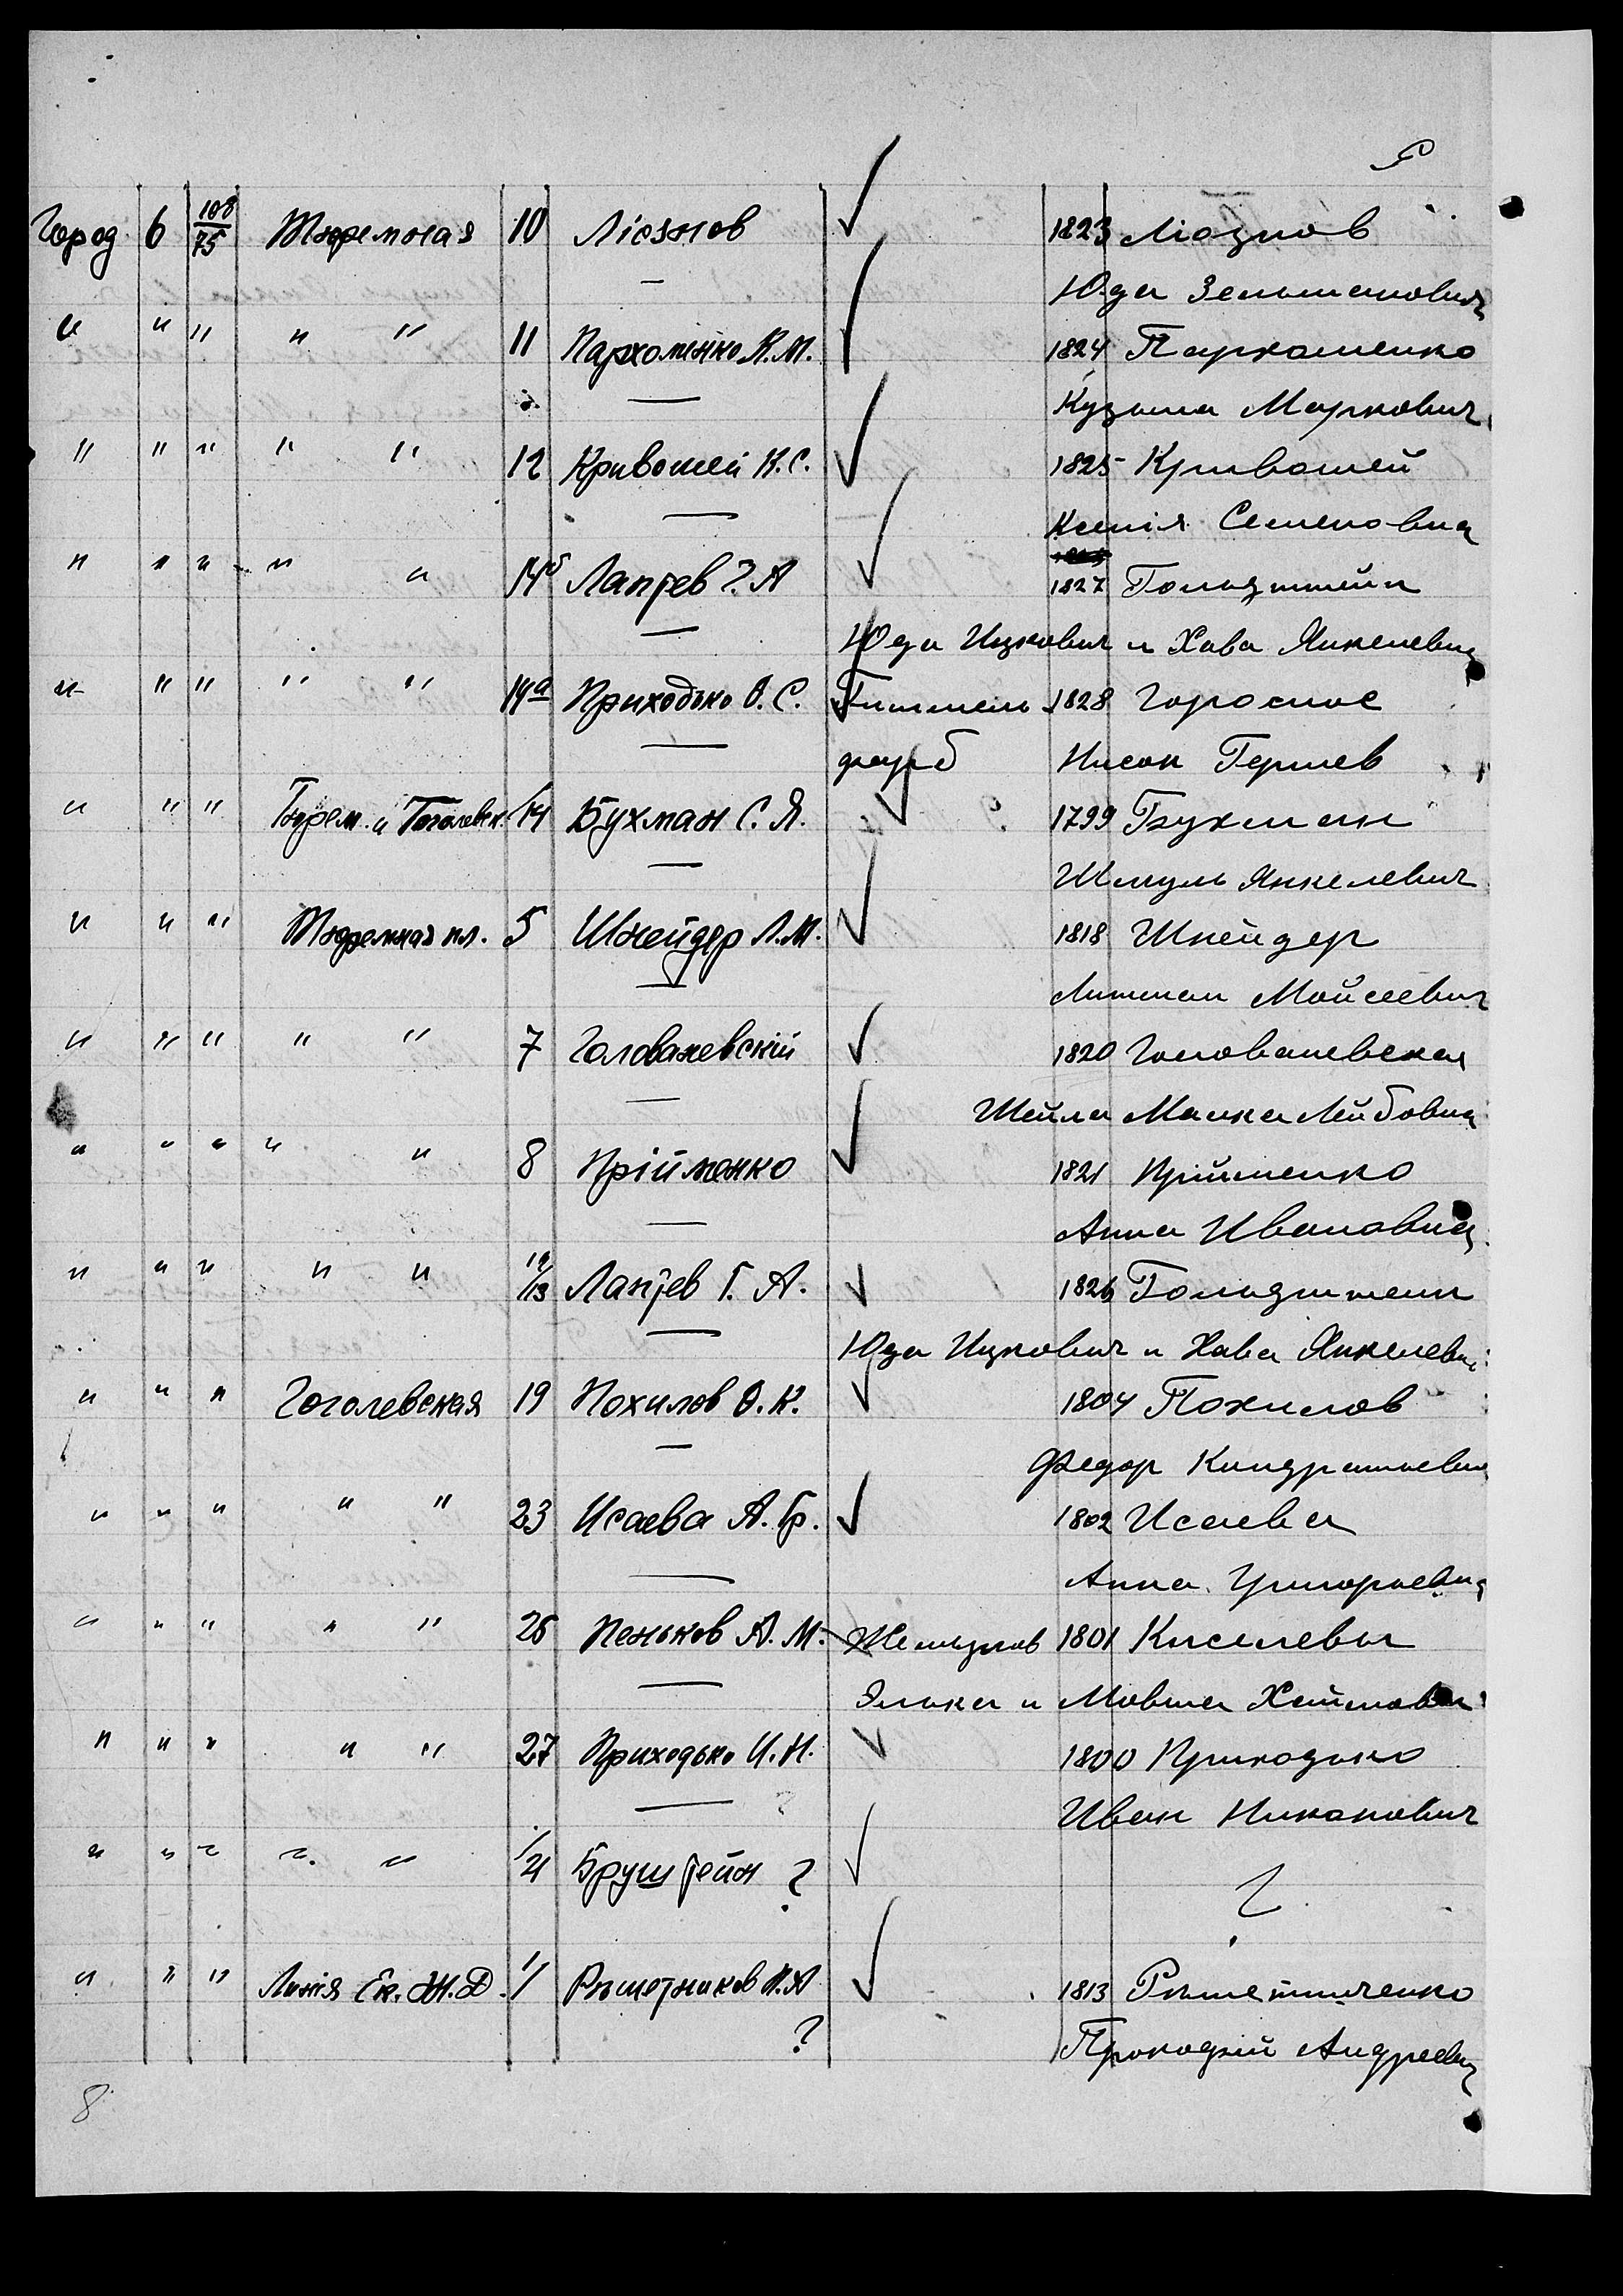 Город 6 108/75 Тюремная 10 Ліознов ✓ 1823 Ліознов
— Юда Зельманович
" " " " " 11 Пархоменко К.М. ✓ 1824 Пархоменко
— Кузьма Маркович
" " " " " 12 Кривошей К.С. ✓ 1825 Кривошей
— Ксенія Семеновна
" " " " " 14б Лаптев ?. А ✓ 1827 Гольдштейн
— Юда Ицкович и Хава Янкелевна
" " " " " 14а Приходько О. С. 1828
— Нисон Гершев
" " " Тюрем. и Гоголевск. /14 Бухман С. Я. ✓ 1799 Бухман
— Шмуль Янкелевич
" " " Тюремная пл. 5 Шнейдер Л.М. ✓ 1818 Шнейдер
— Липман Мойсеевич
" " " " " 7 Голованевскій ✓ 1820 Голованевская
— Шейла Манка Лейбовна
" " " " " 8 Прійменко ✓ 1821 Прійменко
— Анна Ивановна
" " " " " 12/13 Лаптев Г. А. ✓ 1826 Гольдштейн
— Юда Ицкович и Хава Янкелевн:
" " " Гоголевская 19 Похилов Ѳ. К. ✓ 1804 Похилов
— Федор Кондратьевич
" " " " " 23 Исаева А. Гр. ✓ 1802 Исаева
— Анна Григорьевна
" " " " " 25 Пеньков А. М. 1801 Киселевы
— Элька и Мовша Хаимовы
" " " " " 27 Приходько И. Н. ✓ 1800 Приходько
— Иван Никонович
" " " " " /21 Бруштейн ? ✓ ?
" " " Линія Ек. Ж. Д. 1/ Рѣшетников П.А ✓ 1813 Рѣшетниченко
? Прокофій Андреевич
8